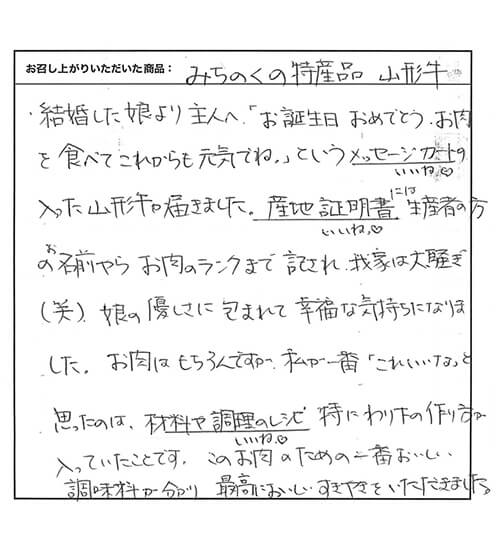 お召し上がりいただいた商品：みちのくの特産品 山形牛
・結婚した娘より主人へ、「お誕生日おめでとう。お肉
を食べてこれからも元気でね。」というメッセージカードの
いいね♡
入った山形牛が届きました。産地証明書には生産者の方
いいね♡
のお名前やら お肉のランクまで記され、我家は大騒ぎ
(笑)。娘の優しさに包まれて幸福な気持ちになりま
した。お肉はもちろんですが、私が一番「これいいな」と
思ったのは、材料や調理のレシピ 特にわり下の作り方が
いいね♡
入っていたことです。このお肉のための一番おいしい
調味料が分かり 最高においしいすきやきをいただきました。